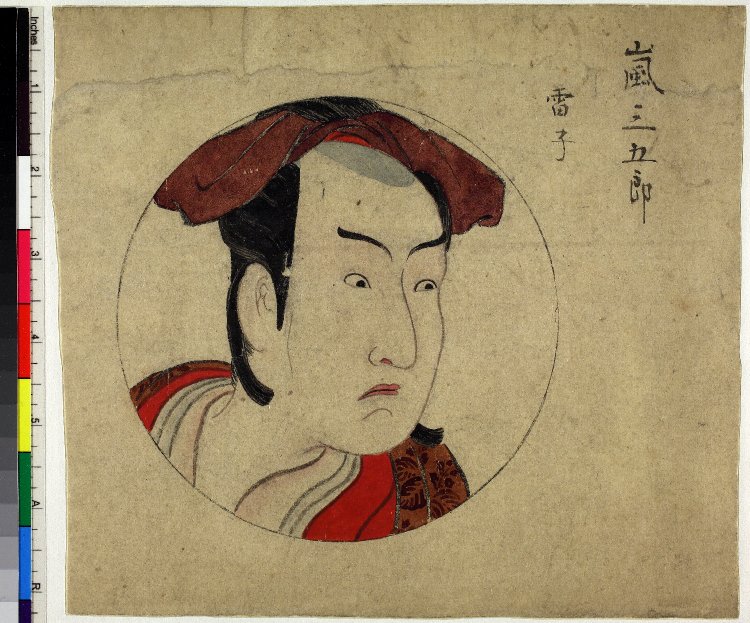 嵐三五郎
雷子
Inches
1
2
3
4
5
A
R